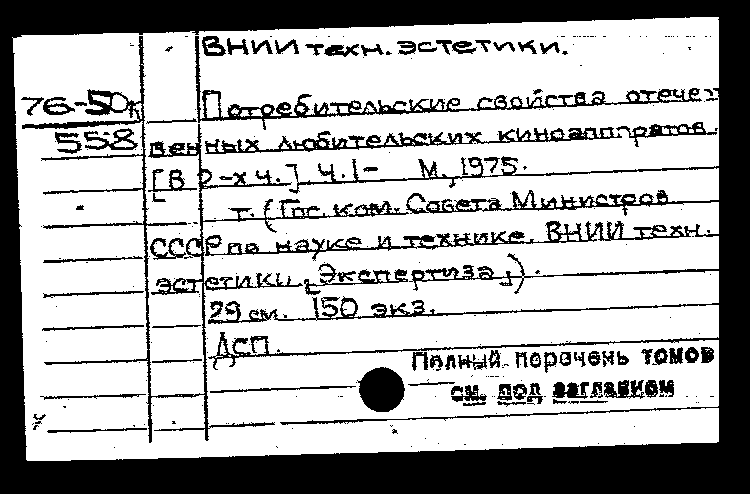 ВНИИ техн. эстетики.
76-50к
558
Потребительские свойства отечест
венных любительских киноаппаратов.
[В 2-х ч.] Ч.1- М., 1975.
т. (Гос. ком. Совета Министров
СССР по науке и технике. ВНИИ техн.
эстетики. [Экспертиза]).
29 см. 150 экз.
ДСП.
Полный перечень томов
см. под заглавием